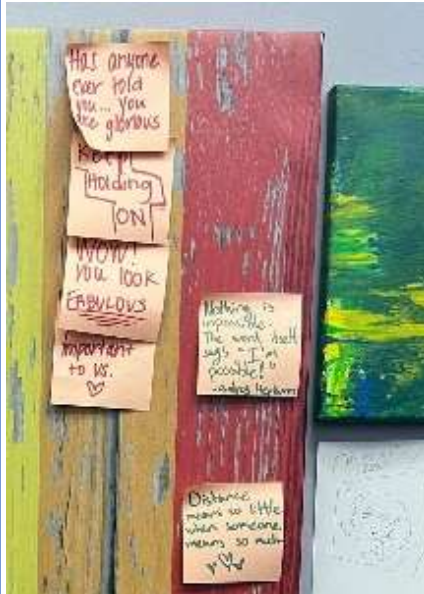 Has anyone
ever told
you... you
are glorious
Keep
Holding
ON
WOW!
you look
FABULOUS
important
to us.
Nothing is
impossible.
The word itself
says "I'm
possible!"
-Audrey Hepburn
Distance
means so little
when someone
means so much